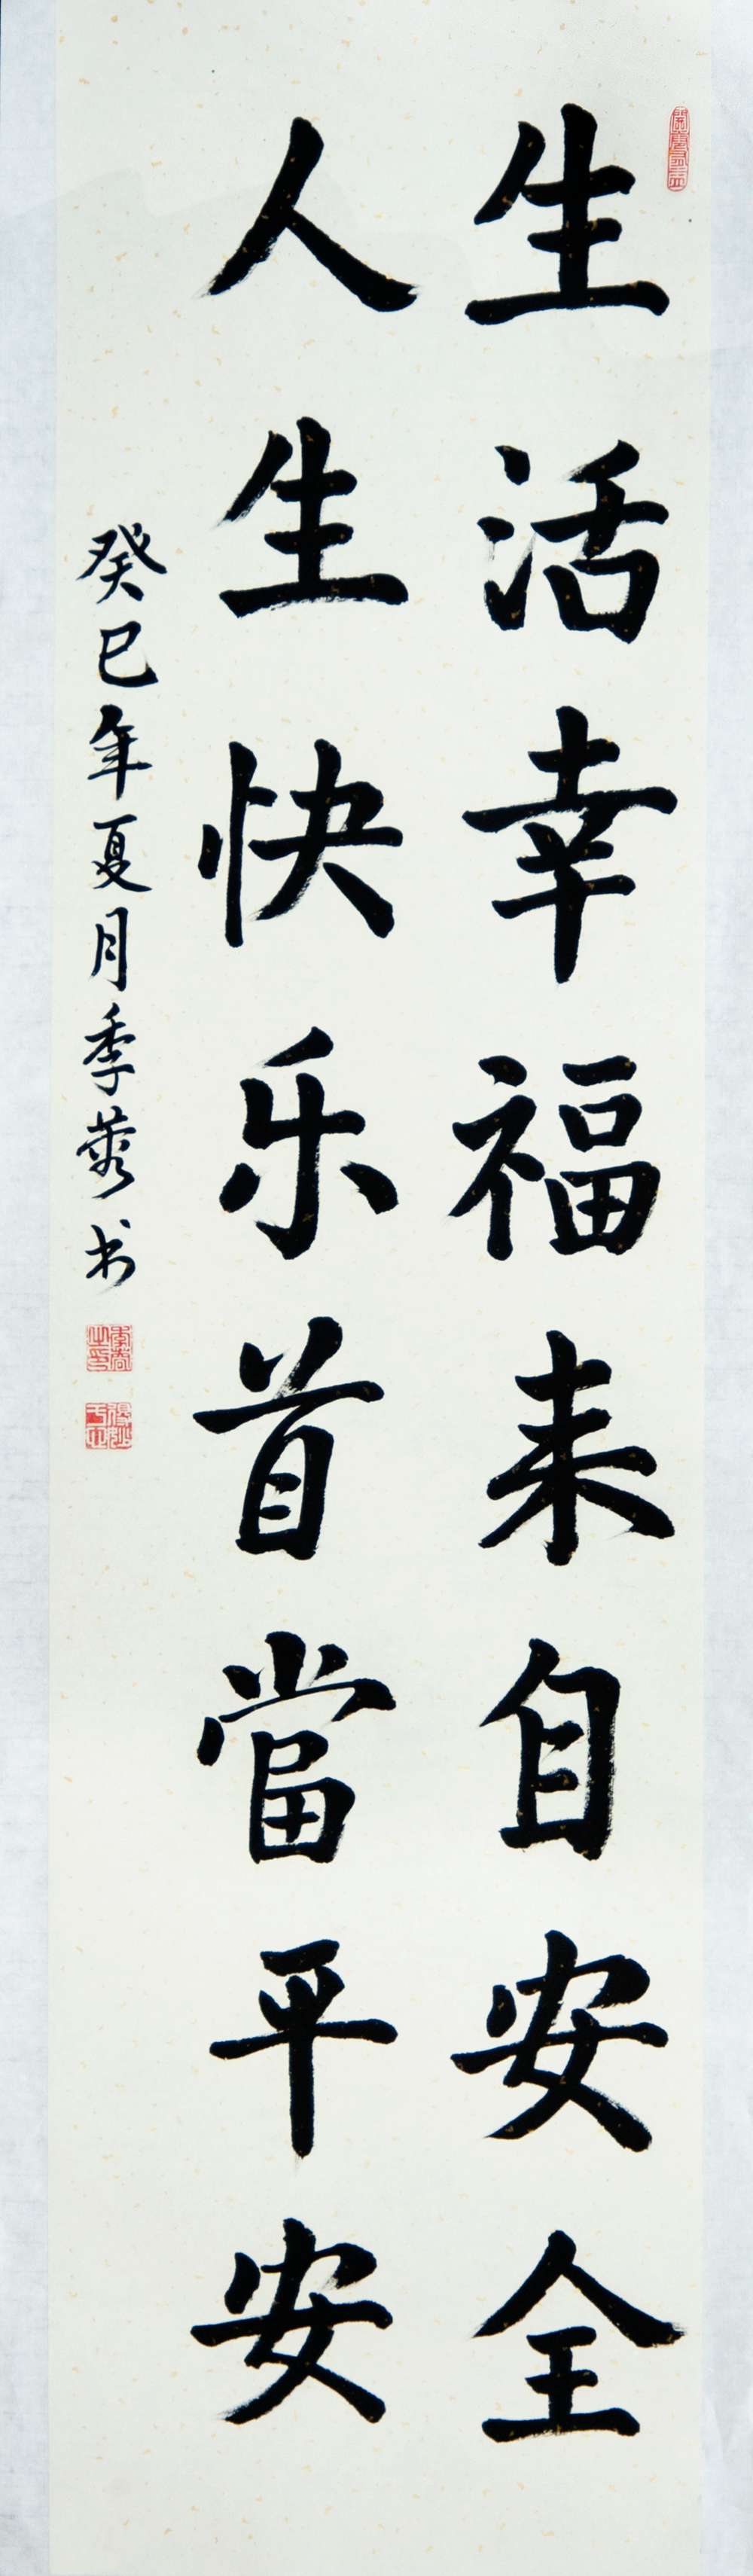 生活幸福来自安全
人生快乐首當平安
癸巳年夏月季 书